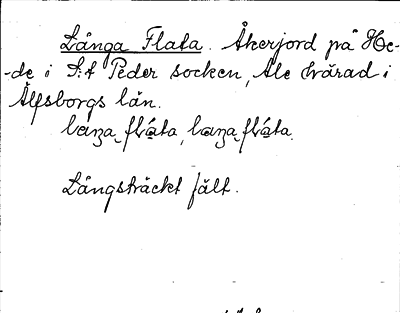 Långa Flata. Åkerjord på He-
-de i S:t Peder socken, Ale härad i
Älfsborgs län.
Långsträckt fält.